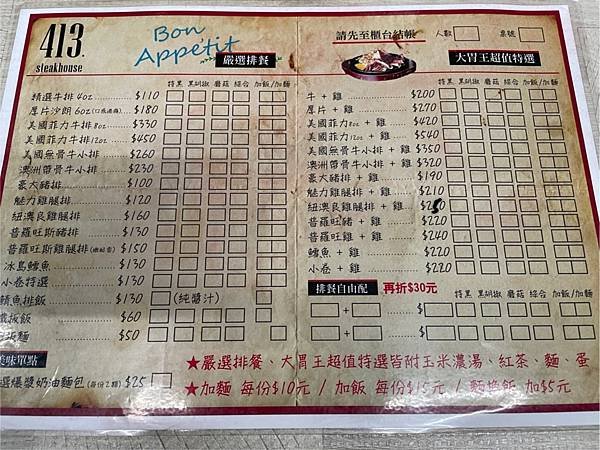 413.
steakhouse
Bon Appétit
嚴選排餐
特黑 黑胡椒 蘑菇 綜合 加飯/加麵
精選牛排 4oz $110
厚片沙朗 6oz $180
美國菲力牛排 8oz $330
美國菲力牛排 12oz $450
美國無骨牛小排 $260
澳洲帶骨牛小排 $230
豪大豬排 $100
魅力雞腿排 $120
紐澳良雞腿排 $160
普羅旺斯豬排 $130
普羅旺斯雞腿排 $150
冰島鱈魚 $130
小卷特選 $130
鯖魚排飯 $130 (純醬汁)
鐵板飯 $60
板麵 $50
美味單點
選爆漿奶油麵包(每份2顆) $25
請先至櫃台結帳
人數
桌號
大胃王超值特選
特黑 黑胡椒 蘑菇 綜合 加飯/加麵
牛 + 雞 $200
厚片 + 雞 $270
美國菲力8oz + 雞 $420
美國菲力12oz + 雞 $540
美國無骨牛小排 + 雞 $350
澳洲帶骨牛小排 + 雞 $320
豪大豬排 + 雞 $190
魅力雞腿排 + 雞 $210
紐澳良雞腿排 + 雞
普羅旺豬 + 雞 $220
普羅旺雞 + 雞 $240
鱈魚 + 雞 $220
小卷 + 雞 $220
排餐自由配 再折$30元
特黑 黑胡椒 蘑菇 綜合 加飯/加麵
+ =
+ =
★嚴選排餐、大胃王超值特選皆附玉米濃湯、紅茶、麵、蛋
★加麵 每份$10元 / 加飯 每份$15元 / 麵換飯 加$5元